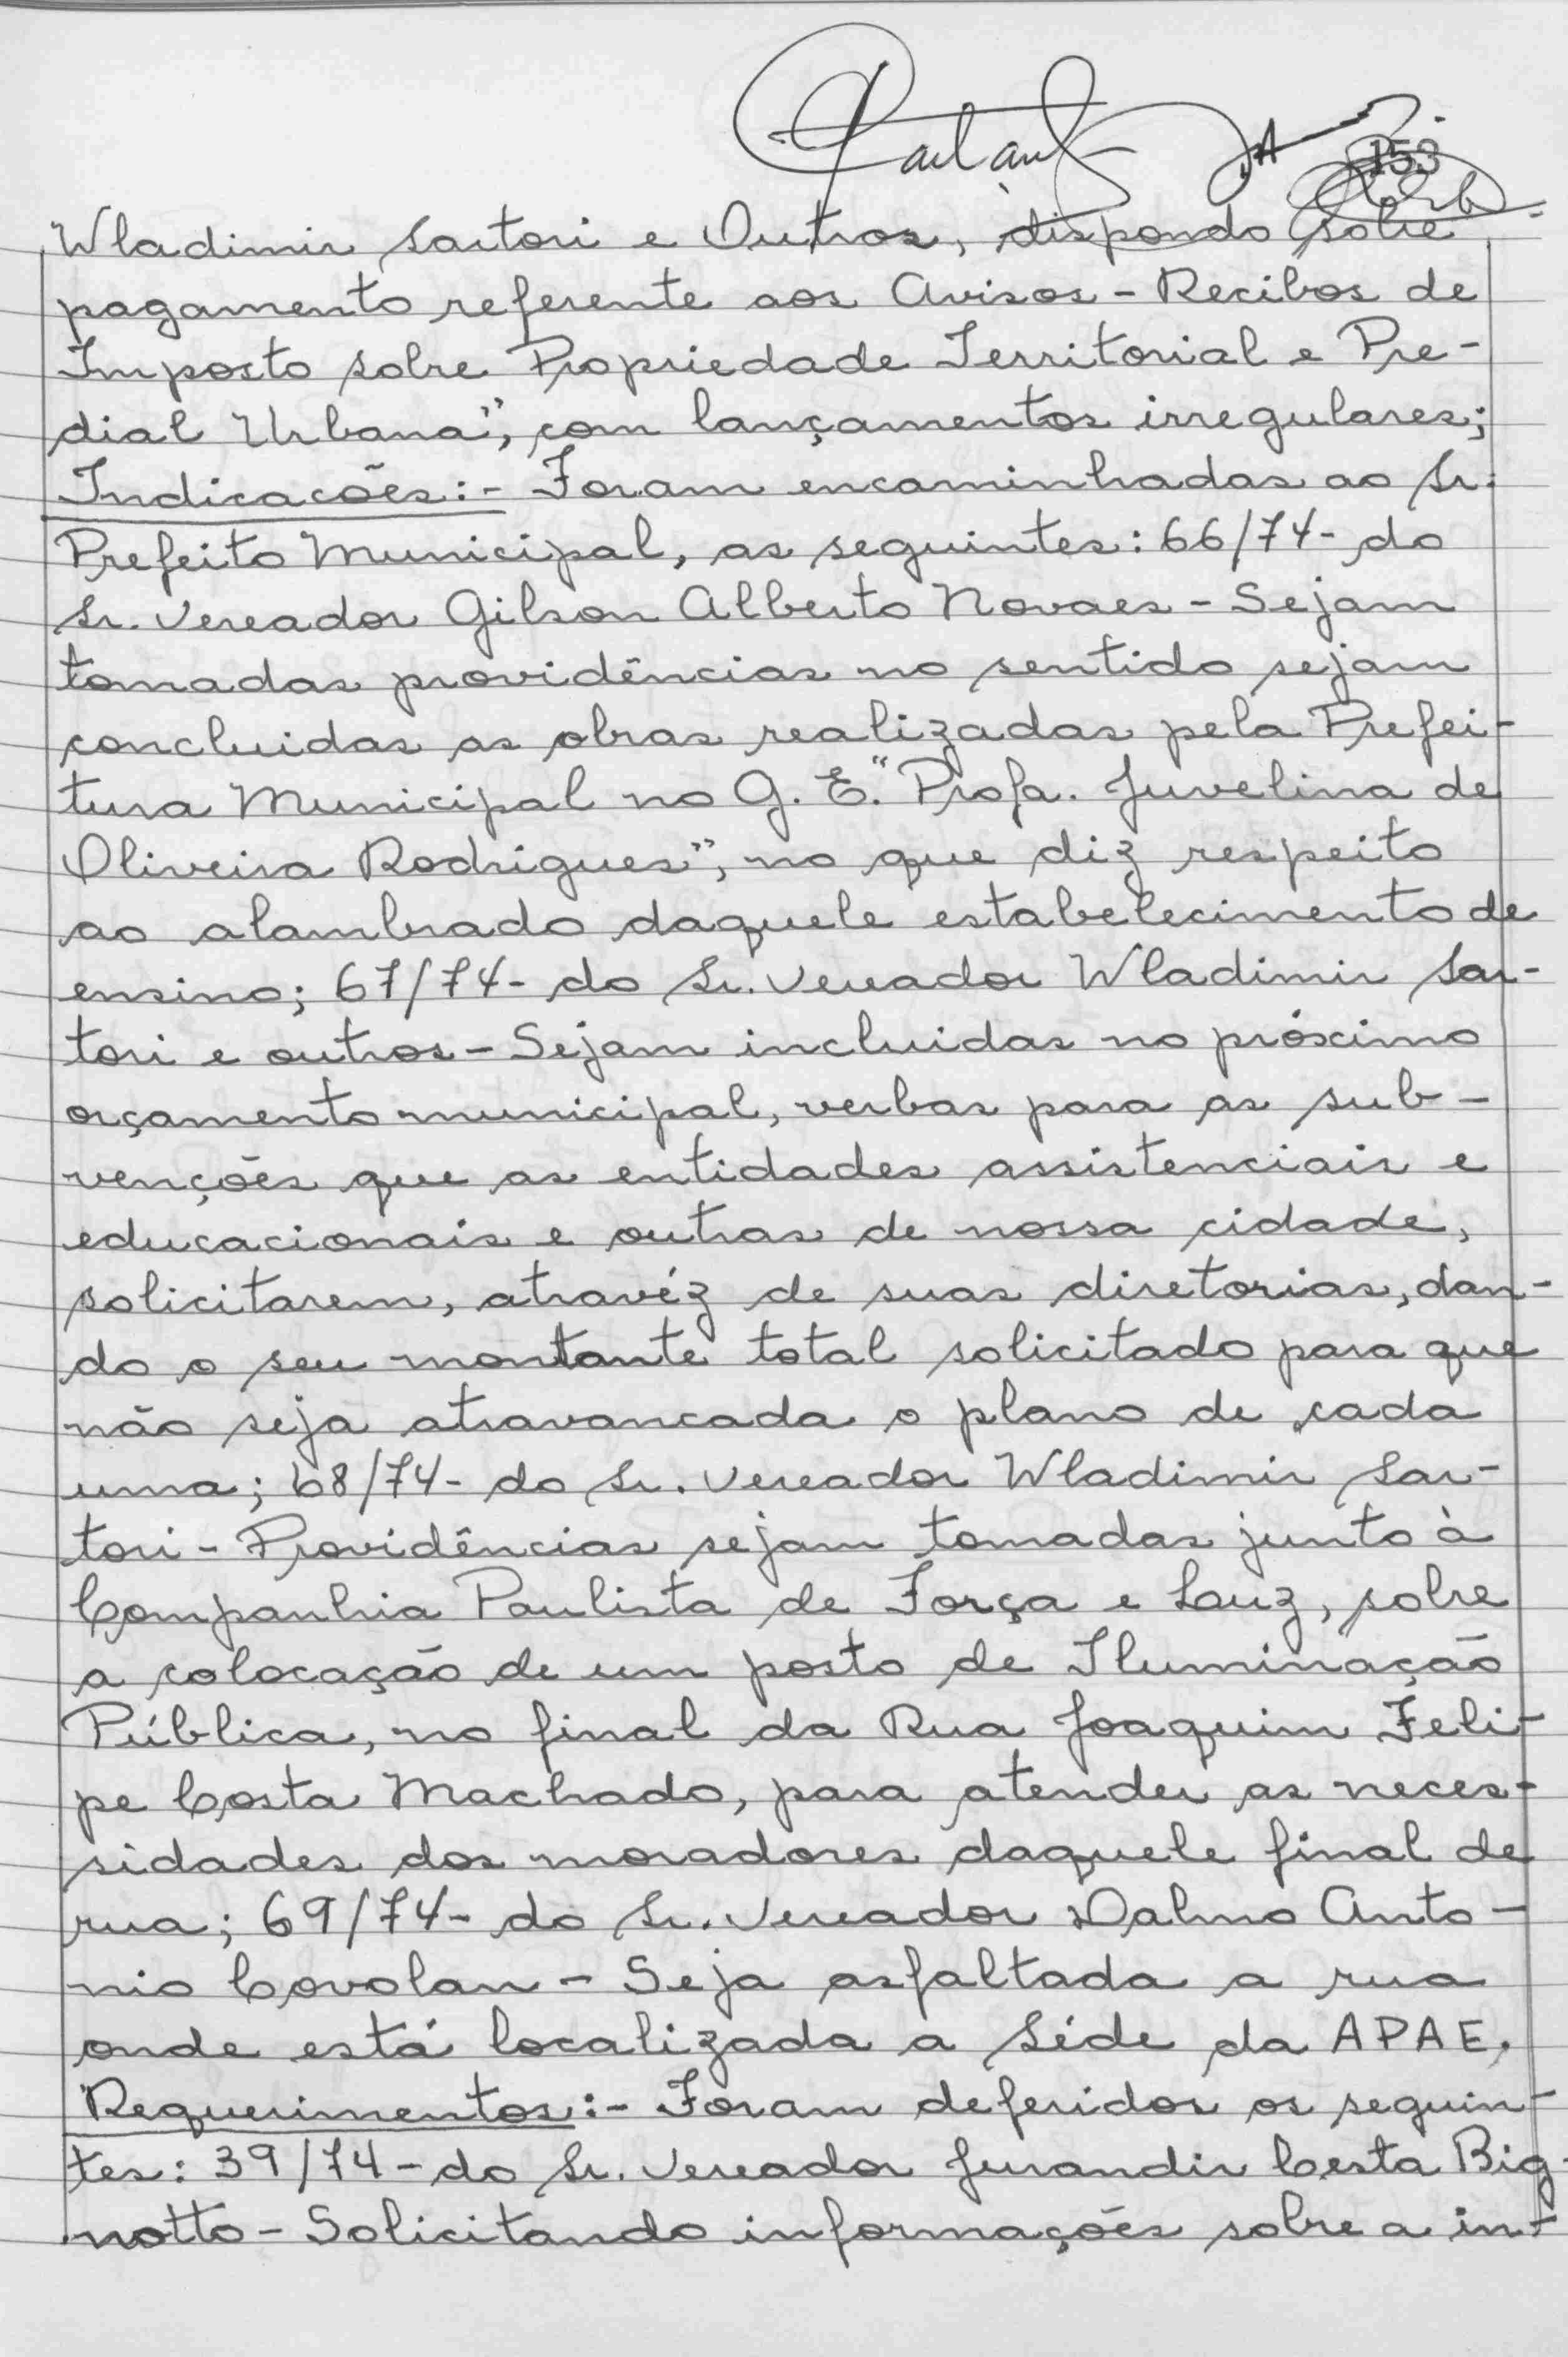 153
Wladimir Sartori e Outros, dispondo sobre
pagamento referente aos Avisos - Recibos de
Imposto sobre Propriedade Territorial e Pre-
dial Urbana", com lançamentos irregulares;
Indicações:- Foram encaminhadas ao Sr.
Prefeito Municipal, as seguintes: 66/74- do
Sr. Vereador Gilson Alberto Novaes - Sejam
tomadas providências no sentido sejam
concluidas as obras realizadas pela Prefei-
tura Municipal no G. E. "Profa. Juvelina de
Oliveira Rodrigues", no que diz respeito
ao alambrado daquele estabelecimento de
ensino; 67/74- do Sr. Vereador Wladimir Sar-
tori e outros - Sejam incluidas no próximo
orçamento municipal, verbas para as sub-
venções que as entidades assistenciais e
educacionais e outras de nossa cidade,
solicitarem, atravéz de suas diretorias, dan-
do o seu montante total solicitado para que
não seja atravancada o plano de cada
uma; 68/74- do Sr. Vereador Wladimir Sar-
tori - Providências sejam tomadas junto à
Companhia Paulista de Força e Luz, sobre
a colocação de um posto de Iluminação
Pública, no final da Rua Joaquim Feli-
pe Costa Machado, para atender as neces-
sidades dos moradores daquele final de
rua; 69/74- do Sr. Vereador Dalmo Anto-
nio Covolan - Seja asfaltada a rua
onde está localizada a Séde da APAE.
Requerimentos:- Foram deferidos os seguin-
tes: 39/74 - do Sr. Vereador Jurandir Costa Big-
notto - Solicitando informações sobre a in-